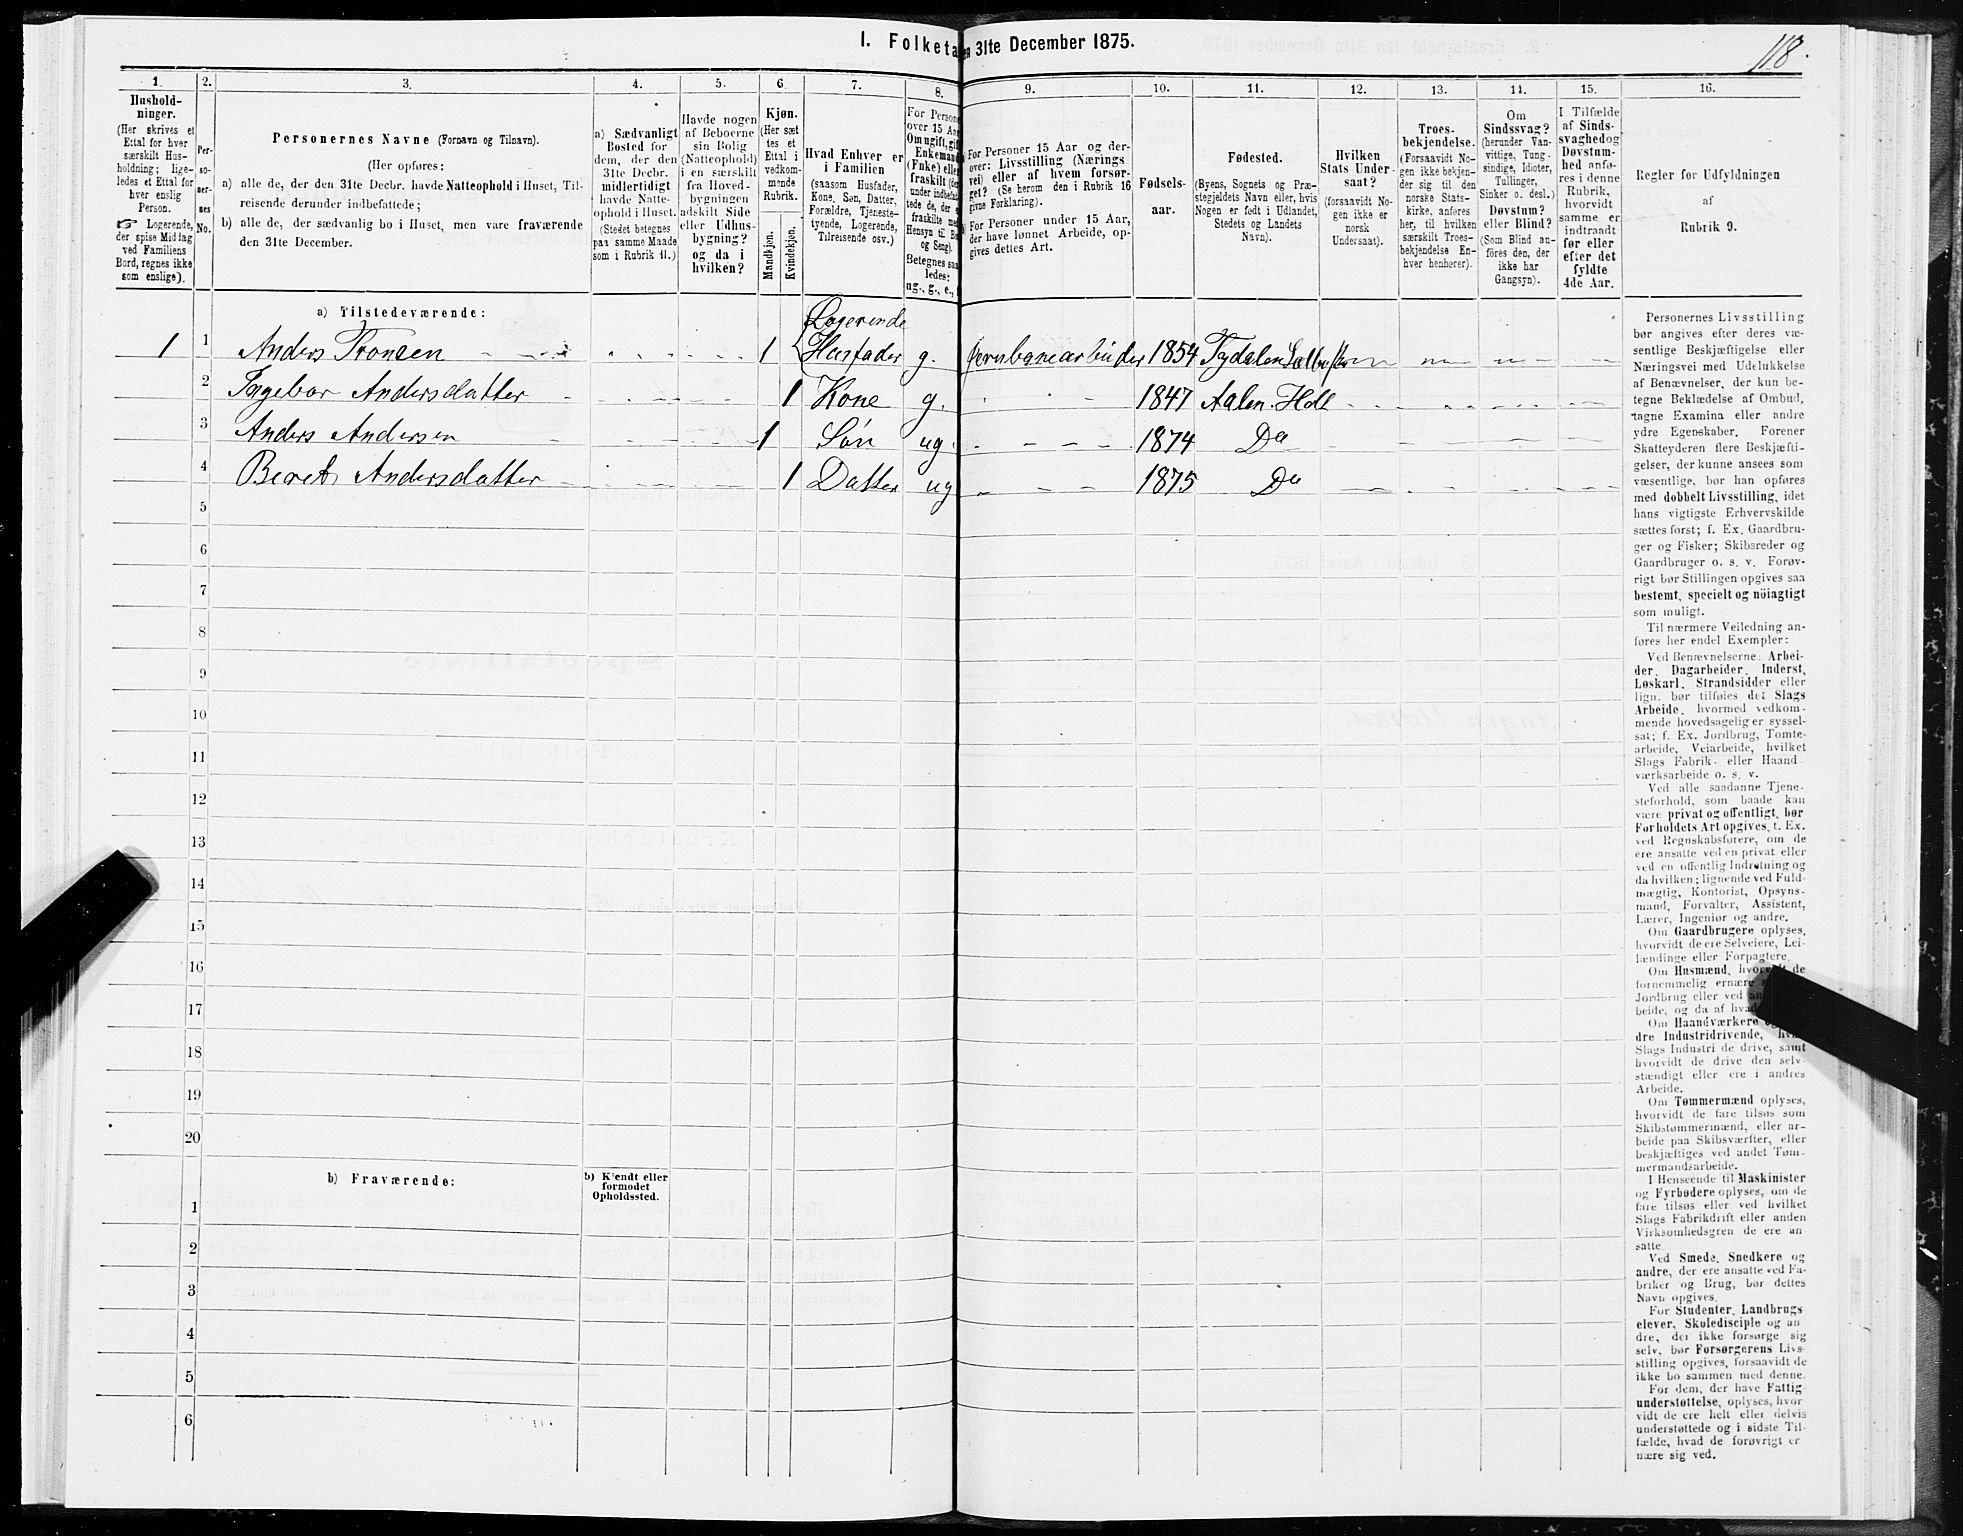 I. Folketa en 31te December 1875.
118.
1.
2.
3.
4.
5.
6.
7.
8.
9.
10.
11.
12.
13.
14.
15.
16.
Hushold-
ninger.
(Her skrives et
Ettal for hver
særskilt Hus-
holdning; lige-
ledes et Ettal for
hver enslig
Person.
☞ Logerende,
der spise Middag
ved Familiens
Bord, regnes ikke
som enslige).
Per-
so-
ner-
nes
No.
Personernes Navne (Fornavn og Tilnavn).
(Her opføres:
a) alle de, der den 31te Decbr. havde Natteophold i Huset, Til-
reisende derunder indbefattede;
b) alle de, der sædvanlig bo i Huset, men vare fraværende
den 31te December.
a) Sædvanligt
Bosted for
dem, der den
31te Decbr.
midlertidigt
havde Natte-
ophold i Huset.
(Stedet betegnes
paa samme Maade
som i Rubrik 11.)
Havde nogen
af Beboerne
sin Bolig
(Natteophold)
i en særskilt
fra Hoved-
bygningen
adskilt Side
eller Udhus-
bygning?
og da i
hvilken?
Kjøn.
(Her sæt
tes et
Ettal i
vedkom-
mende
Rubrik.
Mandkjøn.
Kvindekjøn.
Hvad Enhver er
i Familien
(saasom Husfader,
Kone, Søn, Datter,
Forældre, Tjeneste-
tyende, Logerende,
Tilreisende osv.)
For Persone
over 15 Aar
Om ugift, gift
Enkemand
(Enke) elle
fraskilt (de
under indbefat-
tede de, der e
fraskilte me
Hensyn til Bo
og Seng).
Betegnes saa
ledes:
ug., g., e., f
For Personer 15 Aar og der-
over: Livsstilling (Nærings
vei) eller af hvem forsør-
get? (Se herom den i Rubrik 16
givne Forklaring).
For Personer under 15 Aar,
der have lønnet Arbeide, op-
gives dettes Art.
Fødsels-
aar.
Fødested.
(Byens, Sognets og Præ-
stegjeldets Navn eller, hvis
Nogen er født i Udlandet,
Stedets og Landets
Navn).
Hvilken
Stats Under-
saat?
(forsaavidt No-
gen ikke er
norsk
Undersaat).
Troes-
bekjendelse.
(Forsaavidt No-
gen ikke bekjen-
der sig til den
norske Stats-
kirke, anføres
her, til hvilken
særskilt Troes-
bekjendelse En-
hver henhører).
Om
Sindssvag?
(herunder Van-
vittige, Tung-
sindige, Idioter,
Tullinger,
Sinker o. desl.)
Døvstum?
eller Blind?
(Som Blind an-
føres den, der
ikke har
Gangsyn).
I Tilfælde
af Sinds-
svaghed og
Døvstum-
hed anfø-
res i denne
Rubrik,
hvorvidt
samme er
indtraadt
før eller
efter det
fyldte
4de Aar.
Regler for Udfyldningen
af
Rubrik 9.
a) Tilstedeværende:
1 1 Anders Tronsen 1 Logerende Husfader g. Jernbanearbeider 1854 Tydalen Sælbo
2 Ingebor Andersdatter 1 Kone g. 1847 Aalen. Hdl
3 Anders Andersen 1 Søn ug. 1874 Do
4 Beret Andersdatter 1 Datter ug 1875 Do
5
6
7
8
9
10
11
12
13
14
15
16
17
18
19
20
b) Fraværende:
b) Kjendt eller
formodet
Opholdssted.
1
2
3
4
5
6
Personernes Livsstilling
bør angives efter deres væ-
sentlige Beskjæftigelse eller
Næringsvei med Udelukkelse
af Benævnelser, der kun be-
tegne Beklædelse af Ombud,
tagne Examina eller andre
ydre Egenskaber. Forener
Skatteyderen flere Beskjæfti-
gelser, der kunne ansees som
væsentlige, bør han opføres
med dobbelt Livsstilling, idet
hans vigtigste Erhvervskilde
sættes først; f. Ex. Gaardbru-
ger og Fisker; Skibsreder og
Gaardbruger o. s. v. Forøv-
rigt bør Stillingen opgives saa
bestemt, specielt og nöiagtigt
som muligt.
Til nærmere Veiledning an-
føres her endel Exempler:
Ved Benævnelserne: Arbei-
der, Dagarbeider, Inderst,
Løskarl, Strandsidder eller
lign. bør tilføies det Slags
Arbeide, hvormed vedkom-
mende hovedsagelig er syssel-
sat; f. Ex. Jordbrug, Tomte-
arbeide, Veiarbeide, hvilket
Slags Fabrik- eller Haand
værksarbeide o. s. v.
Ved alle saadanne Tjene-
steforhold, som baade kan
være privat og offentligt, bør
Forholdets Art opgives, t. Ex.
ved Regnskabsførere, om de
ere ansatte ved en privat eller
ved en offentlig Indretning og
da hvilken; lignende ved Fuld-
mægtig, Kontorist, Opsyns-
mand, Forvalter, Assistent,
Lærer, Ingeniør og andre.
Om Gaardbrugere oplyses,
hvorvidt de ere Selveiere, Lei-
lændinge eller Forpagtere.
Om Husmænd, hvorvidt de
fornemmelig ernære
Jordbrug eller ved an
beide, og da af hvad
Om Haandværkere og
dre Industridrivende, hva
Slags Industri de drive, samt
hvorvidt de drive den selv-
stændigt eller ere i andres
Arbeide.
Om Tømmermænd oplyses,
hvorvidt de fare tilsøs som
Skibstømmermænd, eller ar-
beide paa Skibsværfter, eller
beskjæftiges ved andet Tøm-
mermandsarbeide.
I Henseende til Maskinister
og Fyrbødere oplyses, om de
fare tilsøs eller ved hvilket
Slags Fabrikdrift eller anden
Virksomhedsgren de ere an-
satte.
Ved Smede, Snedkere og
andre, der ere ansatte ved Fa-
briker og Brug, bør dettes
Navn opgives.
For Studenter, Landbrugs
elever, Skoledisciple og an
dre, der ikke forsørge sig
selv, bør Forsørgerens Livs-
stilling opgives, forsaavidt de
ikke bo sammen med denne.
For dem, der have Fattig
understøttelse, oplyses, hvor
vidt de ere helt eller delvis
understøttede og i sidste Til-
fælde, hvad de forøvrigt er
nære sig ved.